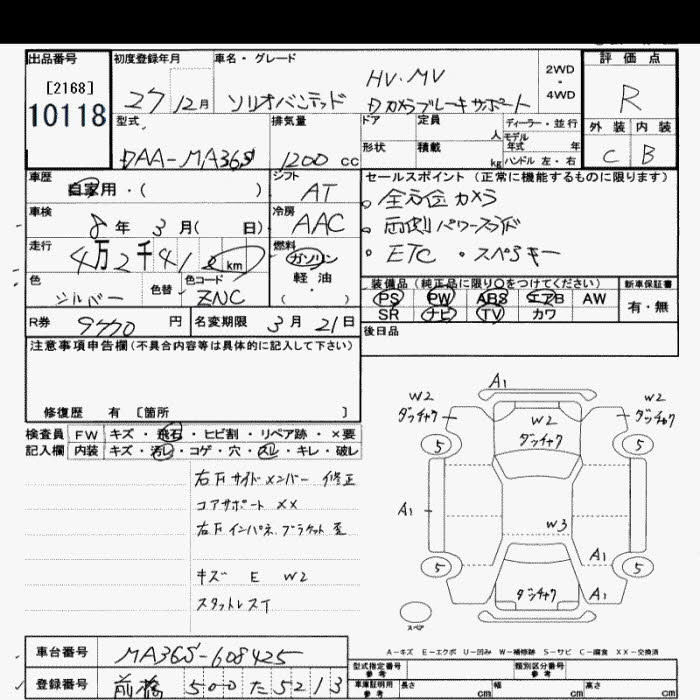 出品番号 初度登録年月 車名・グレード 評価点
[2168]
10118
27 12月 ソリオバンデッド HV・MV 2WD・4WD R
Dカメラブレーキサポート
型式 排気量 ドア 定員 人 ディーラー・並行 外装 内装
モデル年式 年
DAA-MA36S 1200 cc 形状 積載 kg ハンドル 左・右 C B
車歴 シフト セールスポイント (正常に機能するものに限ります)
自家用・( ) AT 全方位カメラ
車検 冷房 両側パワースライド
8年 3月( 日) AAC ETC ・スペアキー
走行 燃料
4万2千41 km ガソリン
軽油
( )
色 色替 色コード 装備品 (純正品に限り○をつけてください) 新車保証書
シルバー ZNC PS PW ABS エアB AW 有・無
SR ナビ TV カワ
R券 9770円 名変期限 3月21日 後日品
注意事項申告欄(不具合内容等は具体的に記入して下さい)
修復歴 有 [箇所 ]
検査員 FW キズ・飛石・ヒビ割・リペア跡・×要
記入欄 内装 キズ・汚レ・コゲ・穴・スレ・キレ・破レ
右Fサイドメンバー 修正
コアサポート XX
右Fインパネ.ブラケット歪
キズ E W2
スタットレスイ
A1
W2 W2
ダッチャク W2 ダッチャク
ダッチャク
5 5
A1
W3
A1
5 5
ダッチャク A1
スペア
A-キズ E-エクボ U-凹み W-補修跡 S-サビ C-腐食 XX-交換済
車台番号 MA36S-608425
登録番号 前橋 500 た 5213
型式指定番号 参考 類別区分番号 参考
車庫証明用 参考 長さ cm 幅 cm 高さ cm